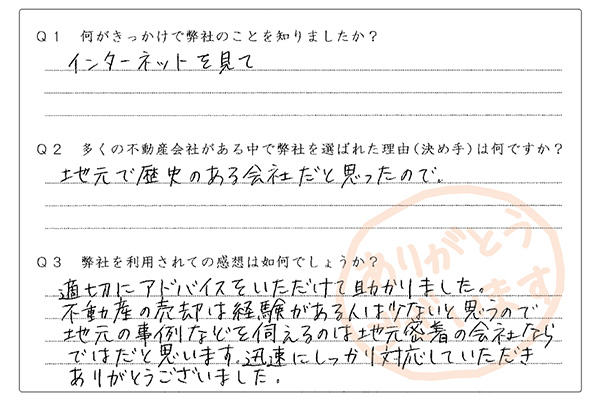 Q1 何がきっかけで弊社のことを知りましたか？
インターネットを見て
Q2 多くの不動産会社がある中で弊社を選ばれた理由(決め手)は何ですか？
地元で歴史のある会社だと思ったので。
Q3 弊社を利用されての感想は如何でしょうか？
適切にアドバイスをいただけて助かりました。
不動産の売却は経験がある人は少ないと思うので
地元の事例などを伺えるのは地元密着の会社なら
ではだと思います。迅速にしっかり対応していただき
ありがとうございました。
ありがとう
ます